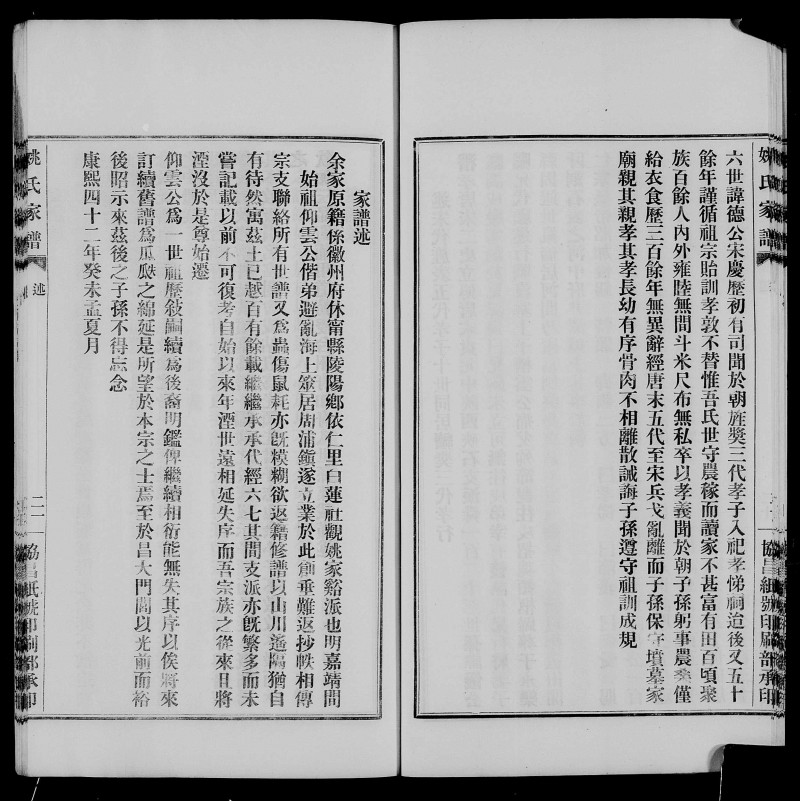 姚氏家譜
協昌紙號印刷部承印
六世諱德公宋慶歷初有司聞於朝旌奬三代孝子入祀孝悌祠迨後又五十
餘年謹循祖宗貽訓孝敦不替惟吾氏世守農稼而讀家不甚富有田百頃聚
族百餘人內外雍睦無間斗米尺布無私卒以孝義聞於朝子孫躬事農桑僅
給衣食歷三百餘年無異辭經唐末五代至宋兵戈亂離而子孫保守墳墓家
廟親其親孝其孝長幼有序骨肉不相離散誠誨子孫遵守祖訓成規
家譜述
余家原籍係徽州府休甯縣陵陽鄉依仁里白蓮社觀姚家谿派也明嘉靖間
始祖仰雲公偕弟避亂海上筮居周浦鎭遂立業於此創垂難返抄帙相傳
宗支聯絡所有世譜又爲蟲傷鼠耗亦旣模糊欲返籍修譜以山川遙隔猶自
有待然寓茲土已越百有餘載繼繼承承代經六七其間支派亦旣繁多而未
嘗記載以前不可復考自始以來年湮世遠相延失序而吾宗族之從來且將
湮沒於是尊始遷
仰雲公爲一世祖歷敍嗣續爲後裔明鑑俾繼續相衍能無失其序以俟將來
訂續舊譜爲瓜瓞之綿延是所望於本宗之士焉至於昌大門閭以光前而裕
後昭示來茲後之子孫不得忘念
康熙四十二年癸未孟夏月
姚氏家譜
述
二
協昌紙號印刷部承印